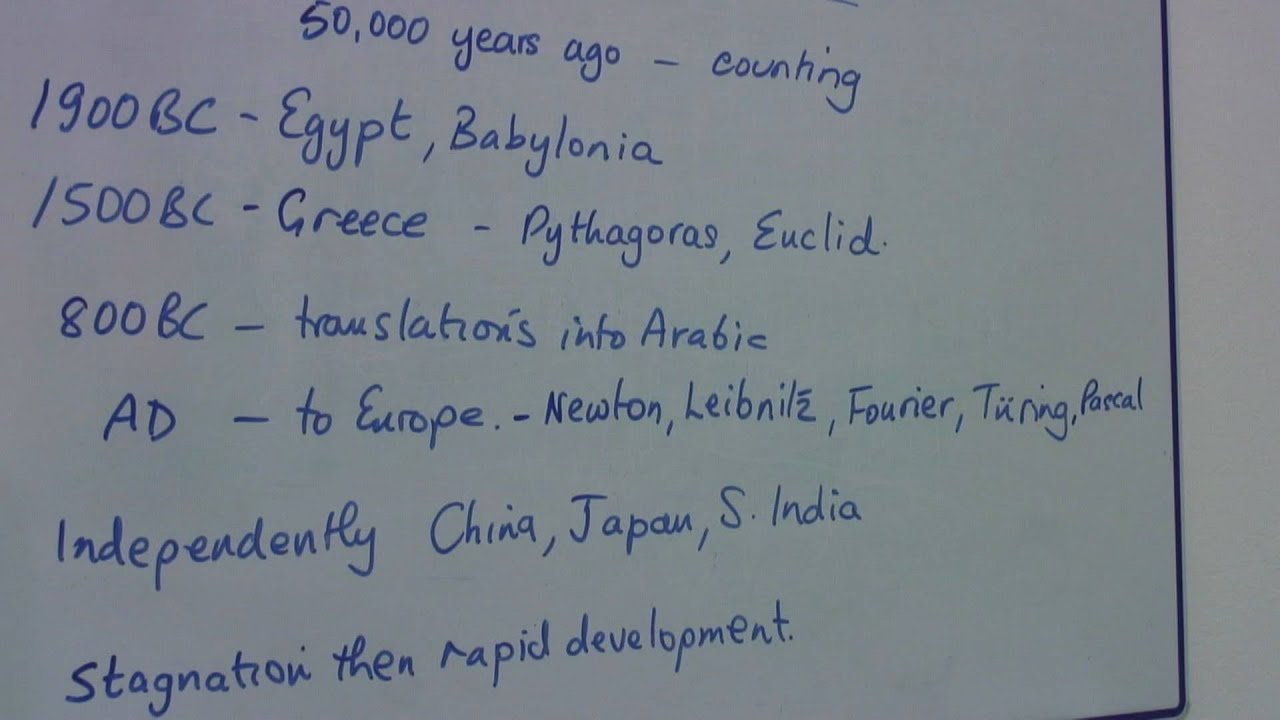 50,000 years ago – counting
1900BC - Egypt, Babylonia
1500BC - Greece - Pythagoras, Euclid.
800BC – translations into Arabic
AD – to Europe. - Newton, Leibnitz, Fourier, Turing, Pascal
Independently China, Japan, S. India
Stagnation then rapid development.